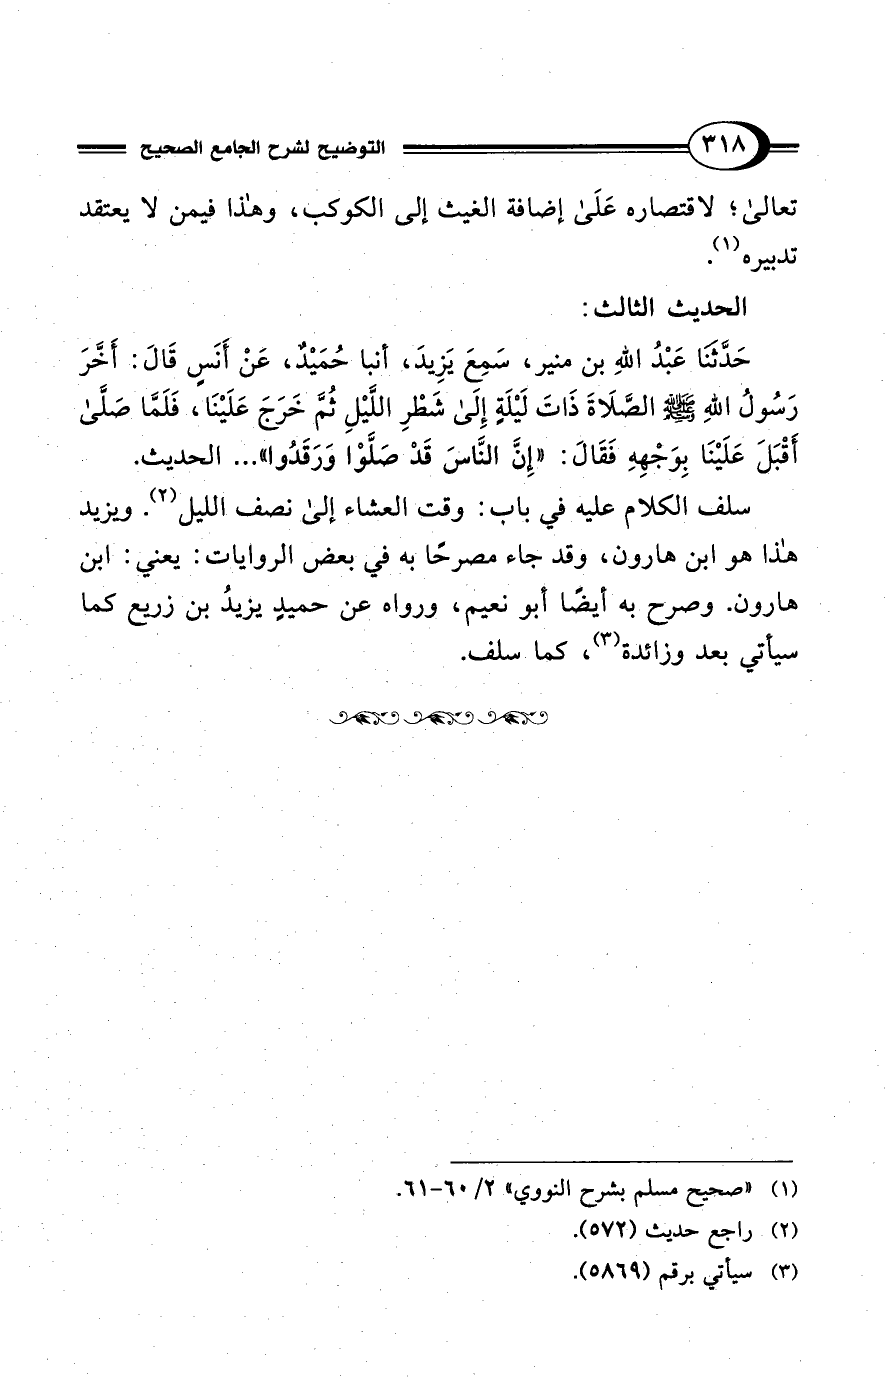 ٣١٨ التوضيح لشرح الجامع الصحيح
تعالىٰ؛ لاقتصاره عَلَىٰ إضافة الغيث إلى الكوكب، وهٰذا فيمن لا يعتقد
تدبيره(١).
الحديث الثالث:
حَدَّثَنَا عَبْدُ اللهِ بن منير، سَمِعَ يَزِيدَ، أنبا حُمَيْدٌ، عَنْ أَنَسٍ قَالَ: أَخَّرَ
رَسُولُ اللهِ ﷺ الصَّلَاةَ ذَاتَ لَيْلَةٍ إِلَىٰ شَطْرِ اللَّيْلِ ثُمَّ خَرَجَ عَلَيْنَا، فَلَمَّا صَلَّىٰ
أَقْبَلَ عَلَيْنَا بِوَجْهِهِ فَقَالَ: «إِنَّ النَّاسَ قَدْ صَلَّوْا وَرَقَدُوا»... الحديث.
سلف الكلام عليه في باب: وقت العشاء إلىٰ نصف الليل(٢). ويزيد
هٰذا هو ابن هارون، وقد جاء مصرحًا به في بعض الروايات: يعني: ابن
هارون. وصرح به أيضًا أبو نعيم، ورواه عن حميدٍ يزيدُ بن زريع كما
سيأتي بعد وزائدة(٣)، كما سلف.
(١) «صحيح مسلم بشرح النووي» ٢/ ٦٠-٦١.
(٢) راجع حديث (٥٧٢).
(٣) سيأتي برقم (٥٨٦٩).